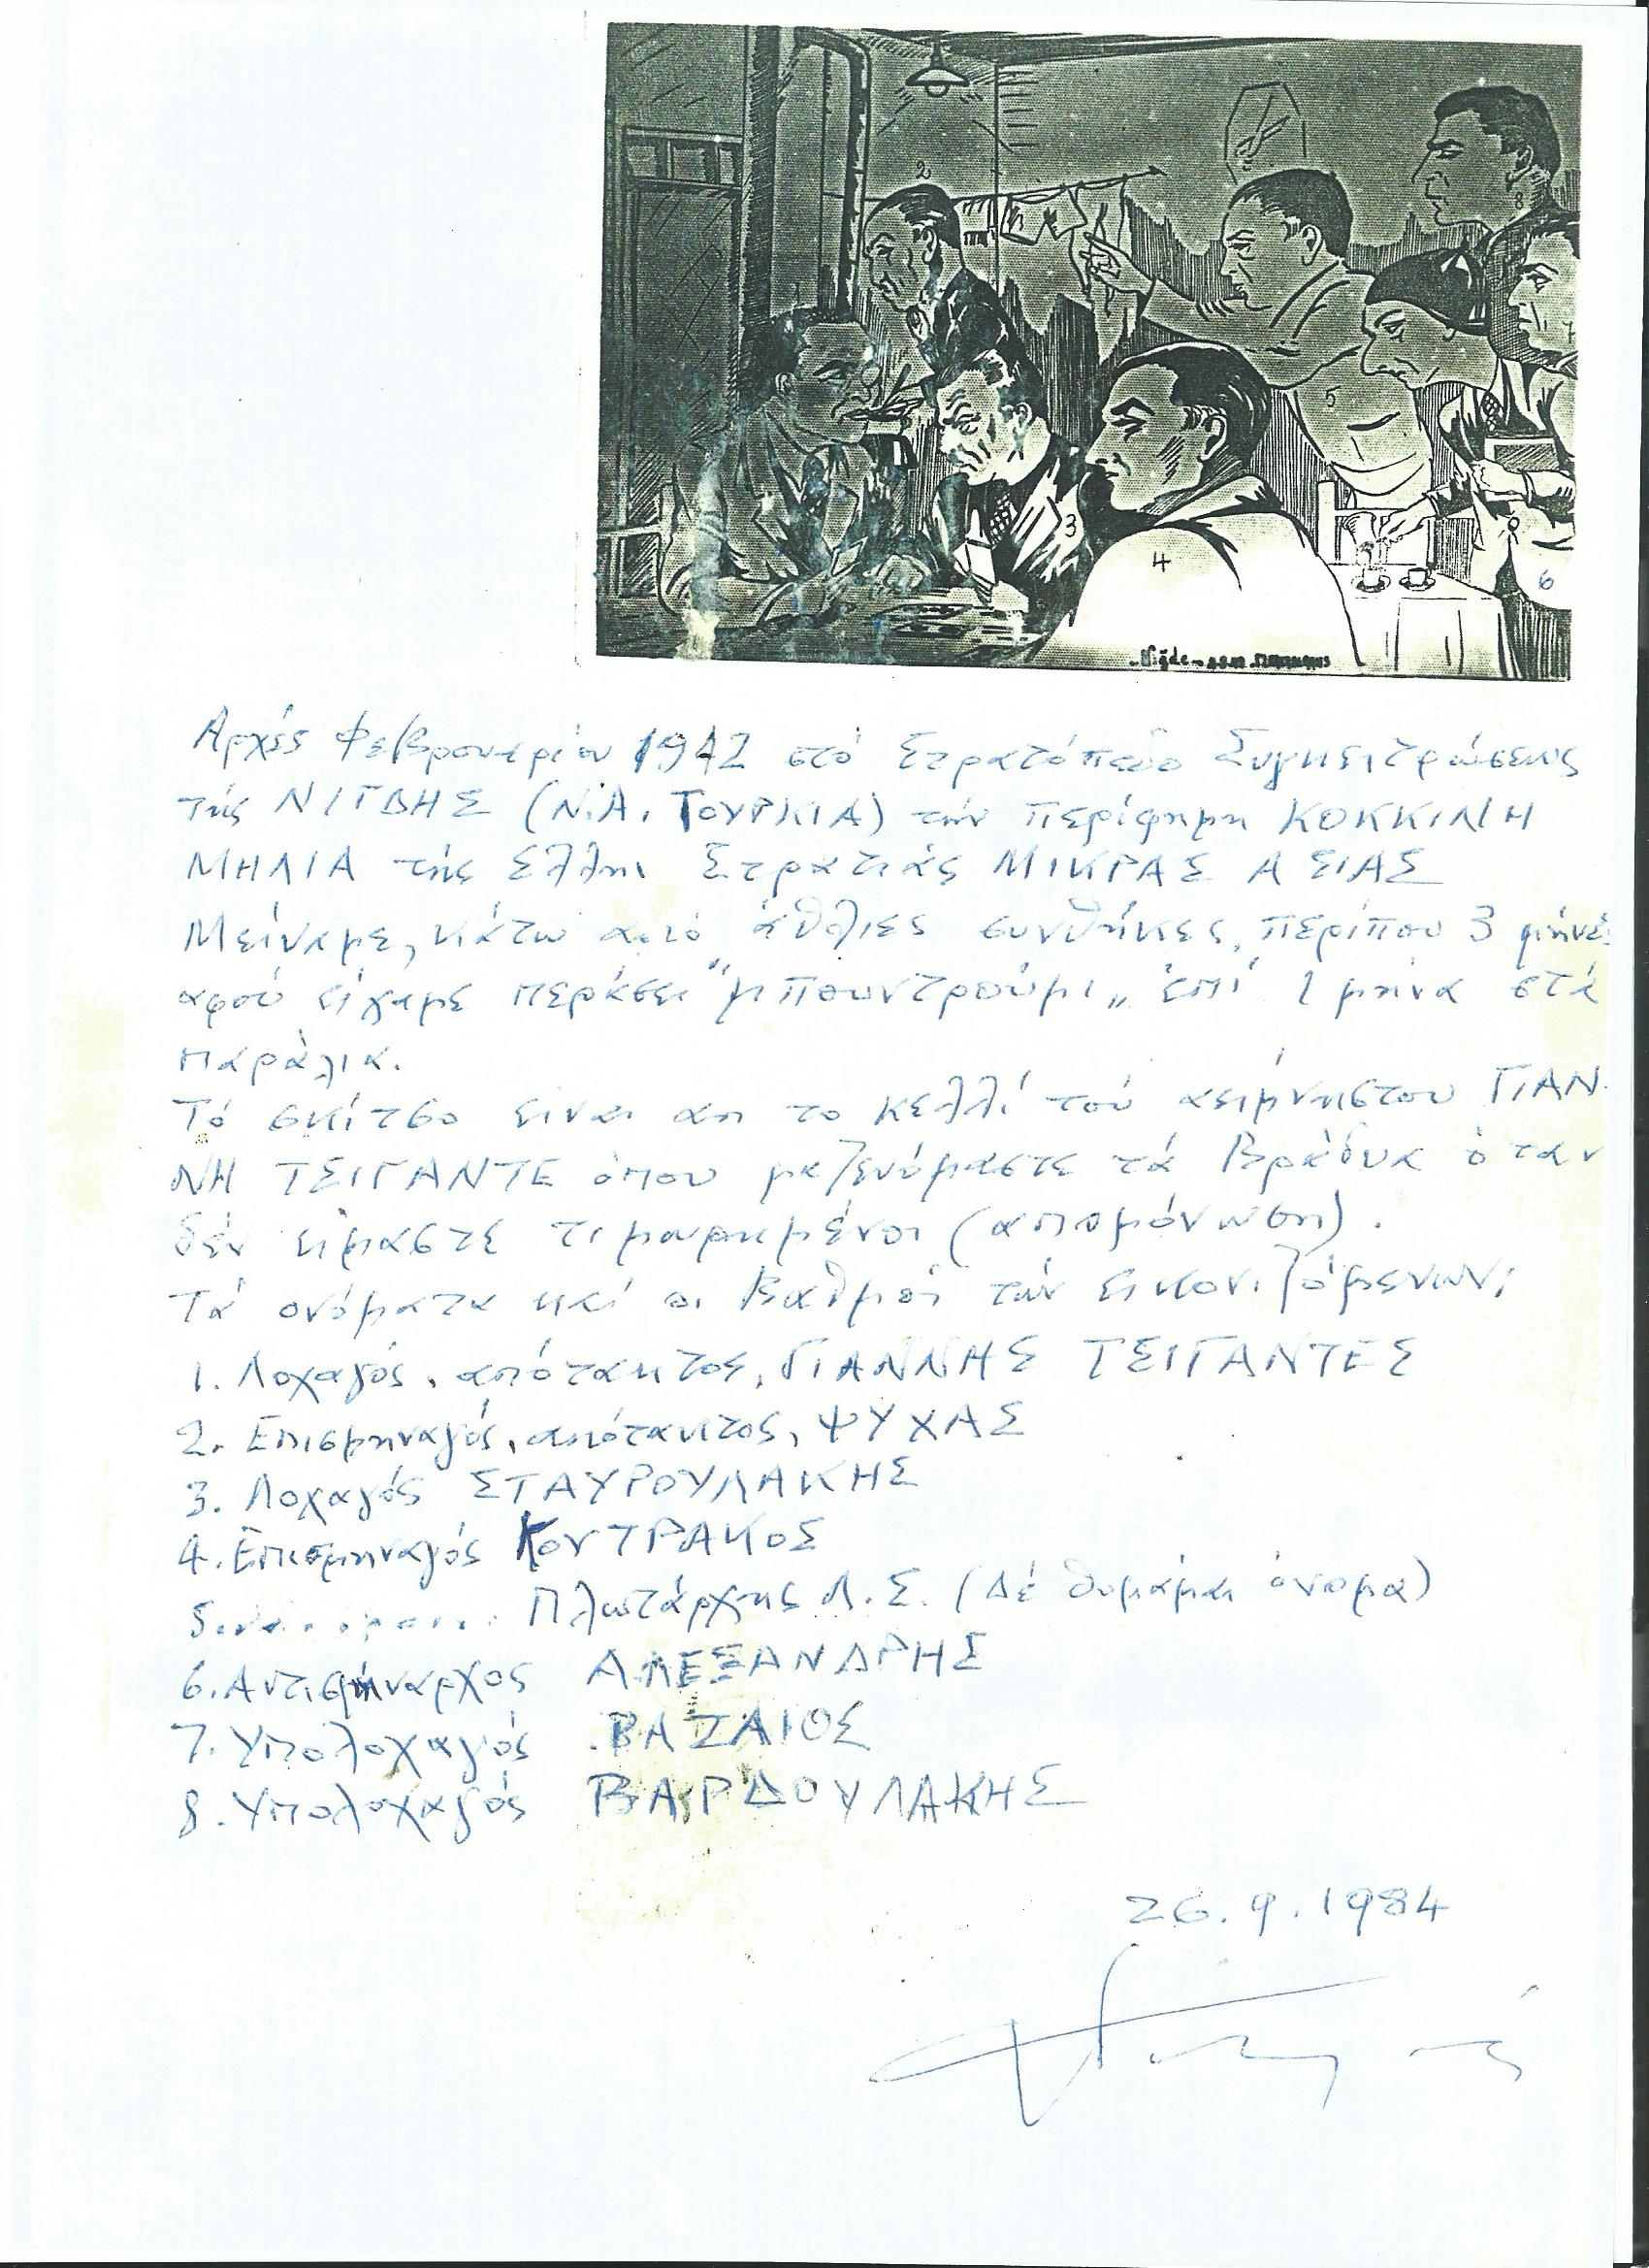 2
8
5
3
4
6
Niğde
Αρχές Φεβρουαρίου 1942 στό Στρατόπεδο Συγκεντρώσεως
τής ΝΙΓΔΗΣ (Ν.Α. ΤΟΥΡΚΙΑ) τήν περίφημη ΚΟΚΚΙΝΗ
ΜΗΛΙΑ τής Ελλην Στρατιάς ΜΙΚΡΑΣ ΑΣΙΑΣ
Μείναμε, κάτω από άθλιες συνθήκες, περίπου 3 μήνες
αφού είχαμε περάσει "μπουντρούμι" επί 1 μήνα στά
παράλια.
Τό σκίτσο είναι απ το κελλί τού αειμνήστου ΓΙΑΝ-
ΝΗ ΤΣΙΓΑΝΤΕ όπου μαζευόμαστε τά Βράδυα όταν
δέν είμαστε τιμωρημένοι (απομόνωση).
Τά ονόματα καί οι Βαθμοί τών εικονιζόμενων;
1. Λοχαγός, απότακτος, ΓΙΑΝΝΗΣ ΤΣΙΓΑΝΤΕΣ
2. Επισμηναγός, απότακτος, ΨΥΧΑΣ
3. Λοχαγός ΣΤΑΥΡΟΥΛΑΚΗΣ
4. Επισμηναγός ΚΟΥΤΡΑΚΟΣ
5. Πλωτάρχης Λ.Σ. (Δέ θυμάμαι όνομα)
6. Αντισμήναρχος ΑΛΕΞΑΝΔΡΗΣ
7. Υπολοχαγός ΒΑΖΑΙΟΣ
8. Υπολοχαγός ΒΑΡΔΟΥΛΑΚΗΣ
26.9.1984